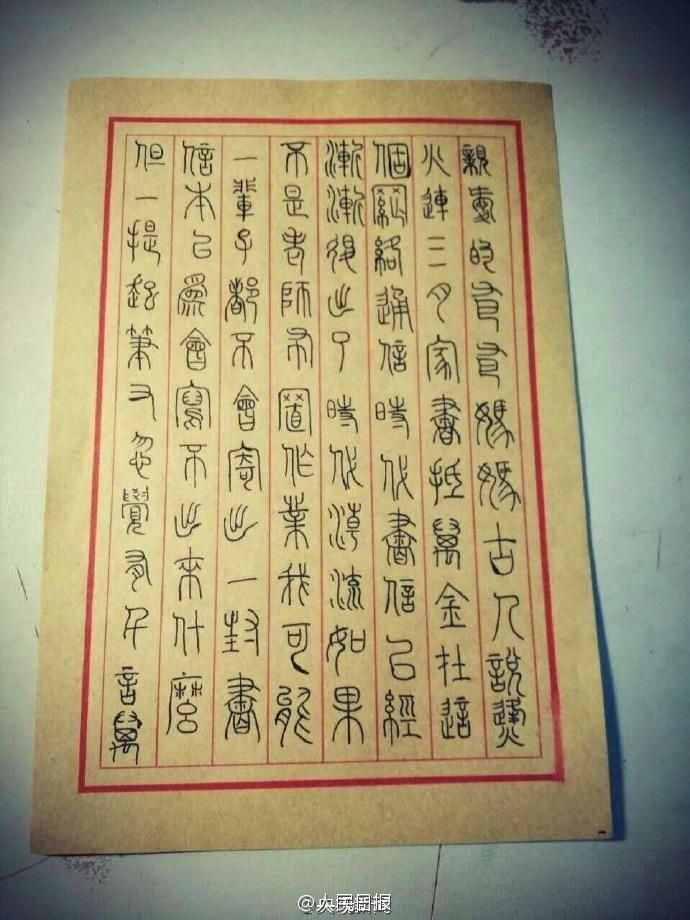 親愛的爸爸媽媽古人說烽
火連三月家書抵萬金在這
個網絡通信時代書信已經
漸漸退出了時代潮流如果
不是老師布置作業我可能
一輩子都不會寄出一封書
信本以為會寫不出來什麼
但一提起筆又忽覺有千言萬
@人民日报